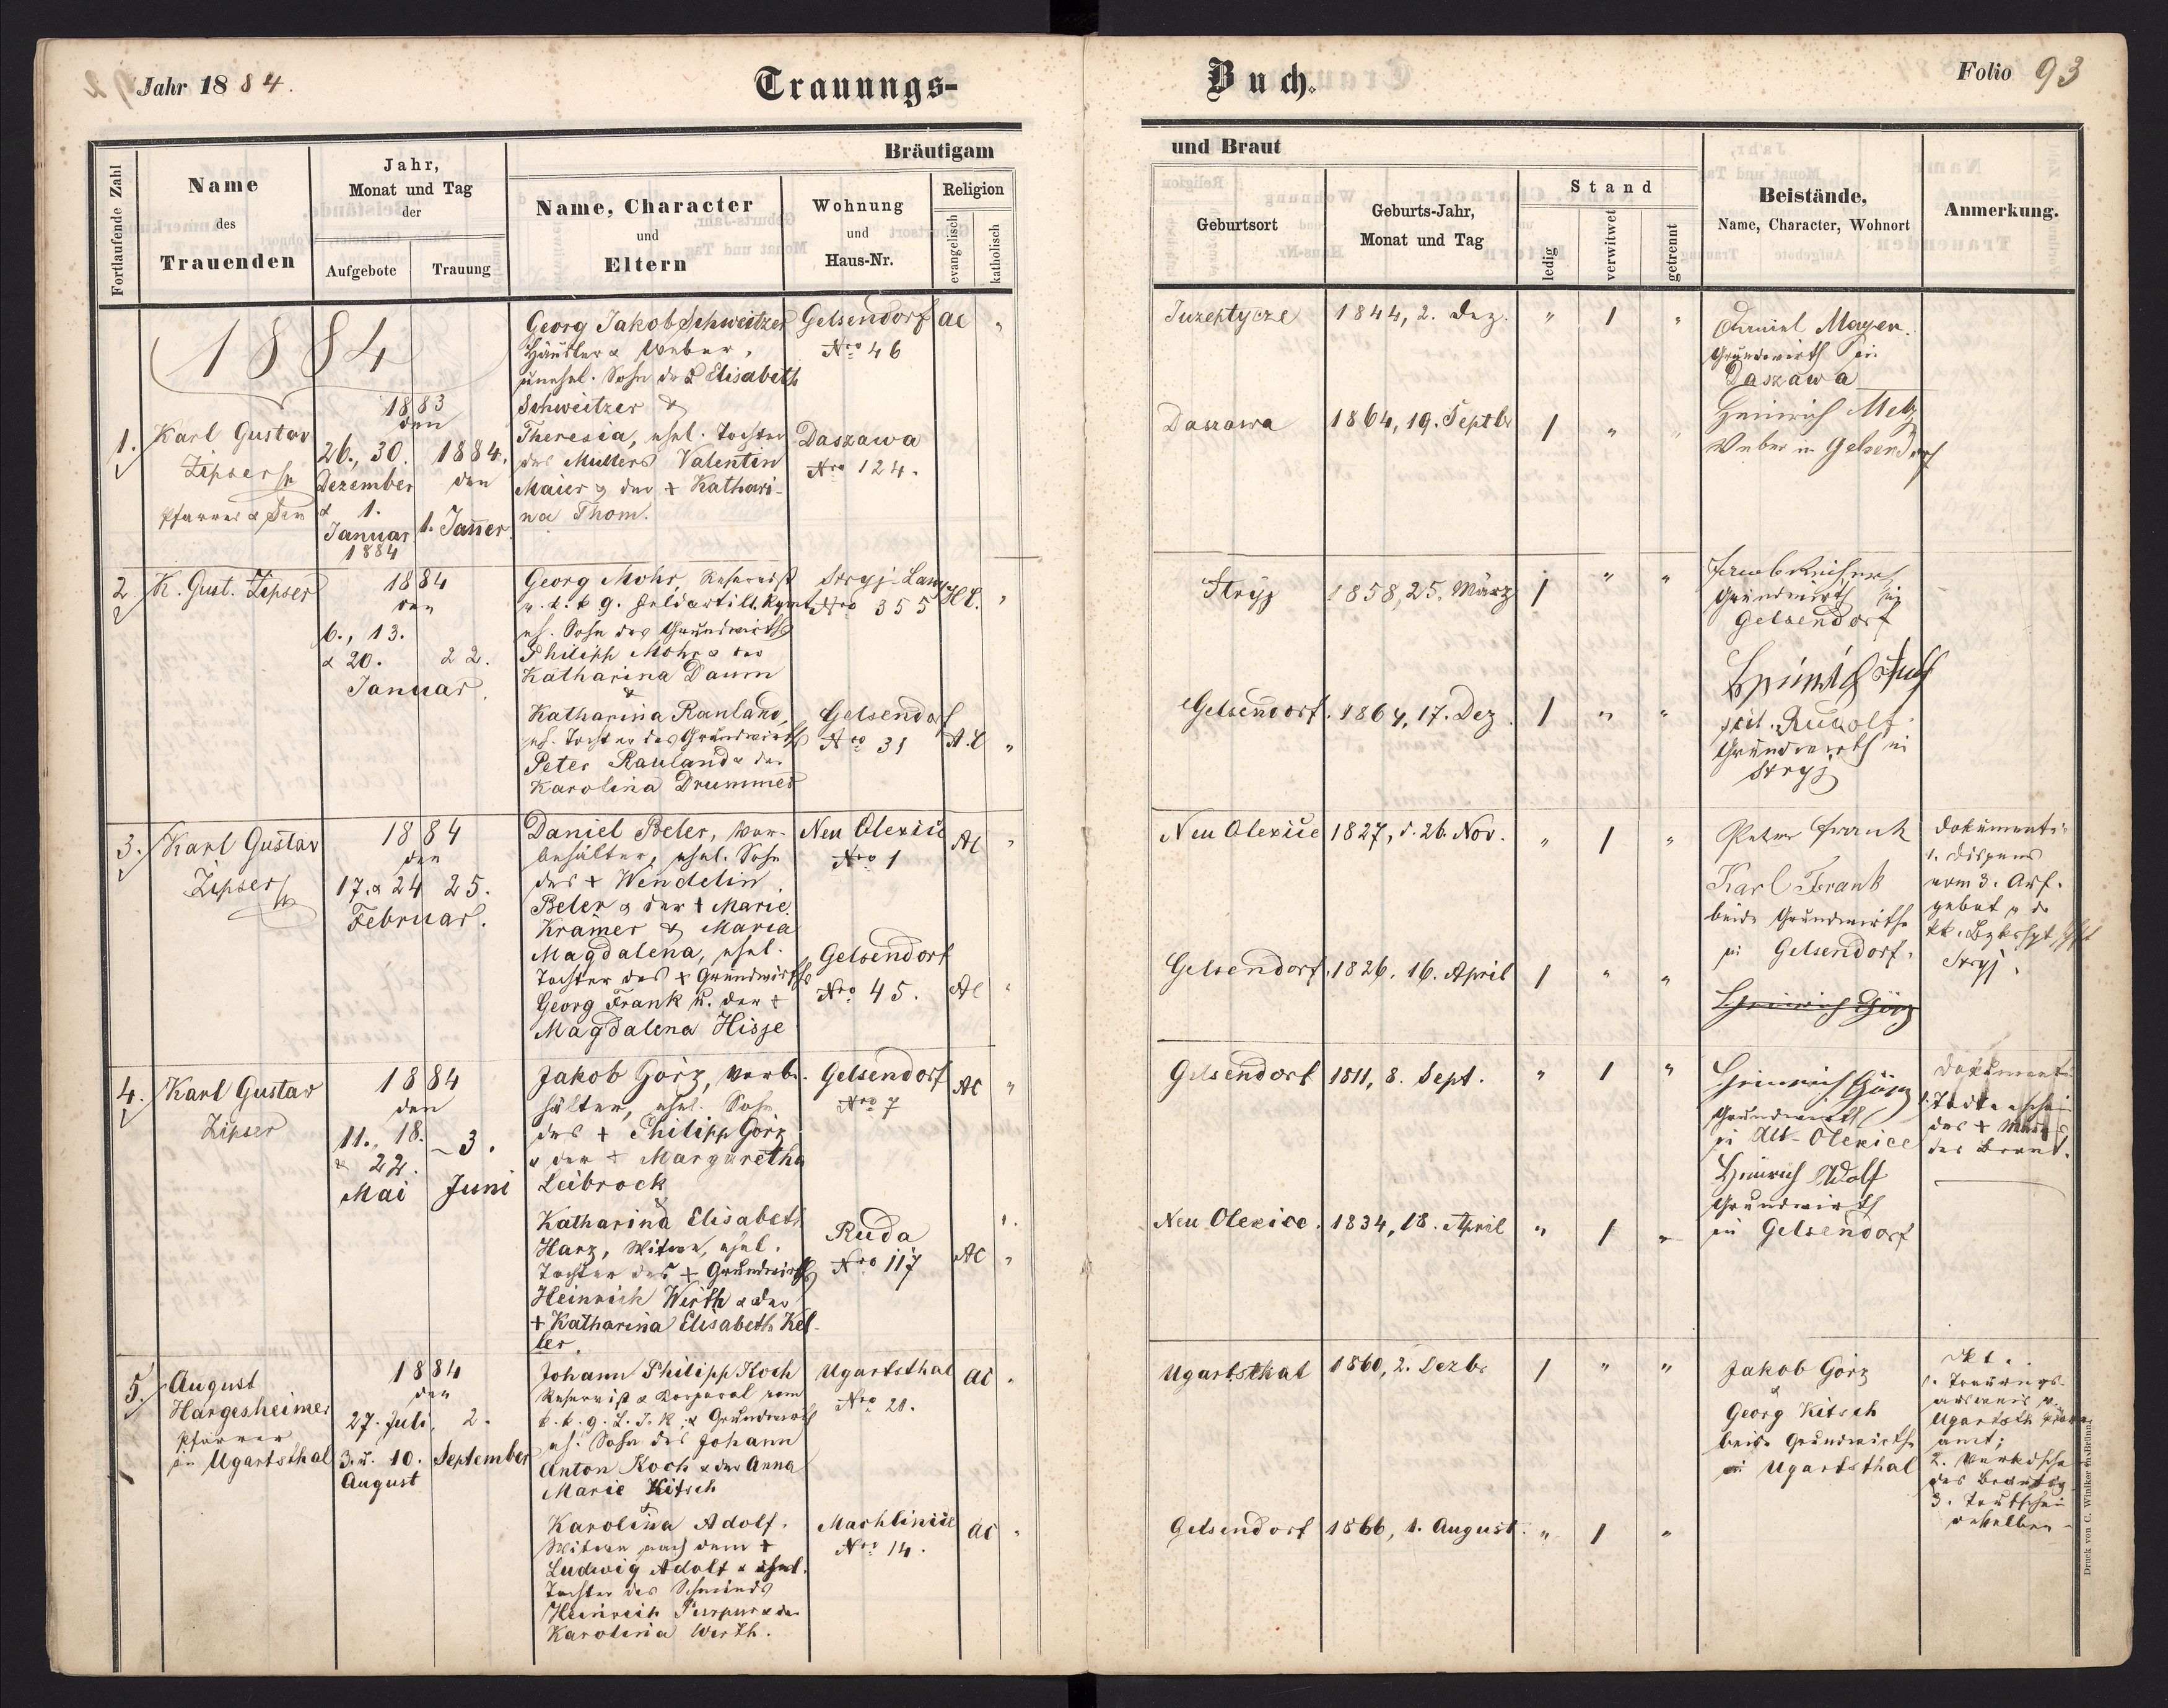 Jahr 1884.
Trauungs-
Buch.
Folio 93
Fortlaufende Zahl
Name
des
Trauenden
Jahr,
Monat und Tag
der
Aufgebote
Trauung
Bräutigam
Name, Character
und
Eltern
Wohnung
und
Haus-Nr.
Religion
evangelisch
katholisch
und Braut
Geburtsort
Geburts-Jahr,
Monat und Tag
Stand
ledig
verwitwet
getrennt
Beistände,
Name, Character, Wohnort
Anmerkung.
1884
1.
Karl Gustav
Zipser
Pfarrer
1883
den
26., 30.
Dezember
& 1.
Januar
1884
1884,
den
1. Jänner
Georg Jakob Schweitzer
Häusler & Weber,
unehel. Sohn der Elisabeth
Schweitzer &
Theresia, ehel. Tochter
des Müllers Valentin
Maier & der + Kathari-
na Thom.
Gelsendorf
Nro 46
AC "
Daszawa
Nro 124.
Juzeptycze
1844, 2. Dez.
" 1 "
Daszawa
1864, 19. Septbr
1 " "
Daniel Mayer
Grundwirth in
Daszawa
Heinrich Metz
Weber in Gelsendorf
2
K. Gust. Zipser
1884
den
6., 13.
& 20.
22.
Januar.
Georg Mohr, Reservist
Feldartill. Rgmt.
eh. Sohn des Grundwirths
Philipp Mohr & der
Katharina Daum
&
Katharina Rauland,
eh. Tochter des Grundwirths
Peter Rauland & der
Karolina Drummer
Stryj-Lany
Nro 355
HC. "
Gelsendorf
Nro 31
A.C "
Stryj
1858, 25. März
1 " "
Gelsendorf.
1864, 17. Dez.
1 " "
Grundwirth in
Gelsendorf
Rudolf
Grundwirth in
Stryj
3.
Karl Gustav
Zipser
1884
den
17. & 24
25.
Februar.
Daniel Beler, Vor-
behälter, ehel. Sohn
des + Wendelin
Beler & der + Marie
Krämer & Maria
Magdalena, ehel.
Tochter des + Grundwirths
Georg Frank u. der +
Magdalena Hisje
Neu Olexice
Nro 1
AC "
Gelsendorf
Nro 45.
AC "
Neu Olexice
1827, d. 26. Nov.
" 1 "
Gelsendorf.
1826. 16. April
1 " "
Peter Frank
Karl Frank
beide Grundwirthe
in Gelsendorf.
Heinrich Görz
Dokumente:
1. Dispens
vom 3. Auf-
gebot v. der
Stryj.
4.
Karl Gustav
Zipser
1884
den
11., 18.
& 22.
Mai
3.
Juni
Jakob Görz, Vorbe-
hälter, ehel. Sohn
des + Philipp Görz
& der + Margaretha
Leibrock
&
Katharina Elisabeth
Harz, Witwe, ehel.
Tochter des + Grundwirths
Heinrich Werth & der
+ Katharina Elisabeth Kel-
ler.
Gelsendorf
Nro 7
AC "
Ruda
Nro 117
AC "
Gelsendorf
1811, 8. Sept.
" 1 "
Neu Olexice.
1834, 18. April
" 1 "
Heinrich Görz
Grundwirth
in Alt-Olexice
Heinrich Adolf
Grundwirth
in Gelsendorf
Dokumente:
1. Todtenschein
des + Mannes
der Braut.
5.
August
Hargesheimer
Pfarrer
in Ugartsthal
1884
den
27. Juli,
3. u. 10.
August
2.
September
Johann Philipp Koch
Reservist & Korporal vom
k. k. g. L. I. R. & Grundwirth
eh. Sohn des Johann
Anton Koch & der Anna
Marie Kitsch
&
Karolina Adolf.
Witwe nach dem +
Ludwig Adolf & ehel.
Tochter des Schmieds
Heinrich Purpur & der
Karolina Werth.
Ugartsthal
Nro 20.
AC "
Machlinice
Nro 14.
AC "
Ugartsthal
1860, 2. Dezbr
1 " "
Gelsendorf
1866, 1. August.
" 1 "
Jakob Görz
&
Georg Kitsch
beide Grundwirthe
in Ugartsthal
Dkt.:
1. Trauungs-
ausweis v.
Ugartsth. Pfarr-
amt;
2.
des Bräutig.
3. Todtschein
desselben
Druck von C. Winiker in Brünn.